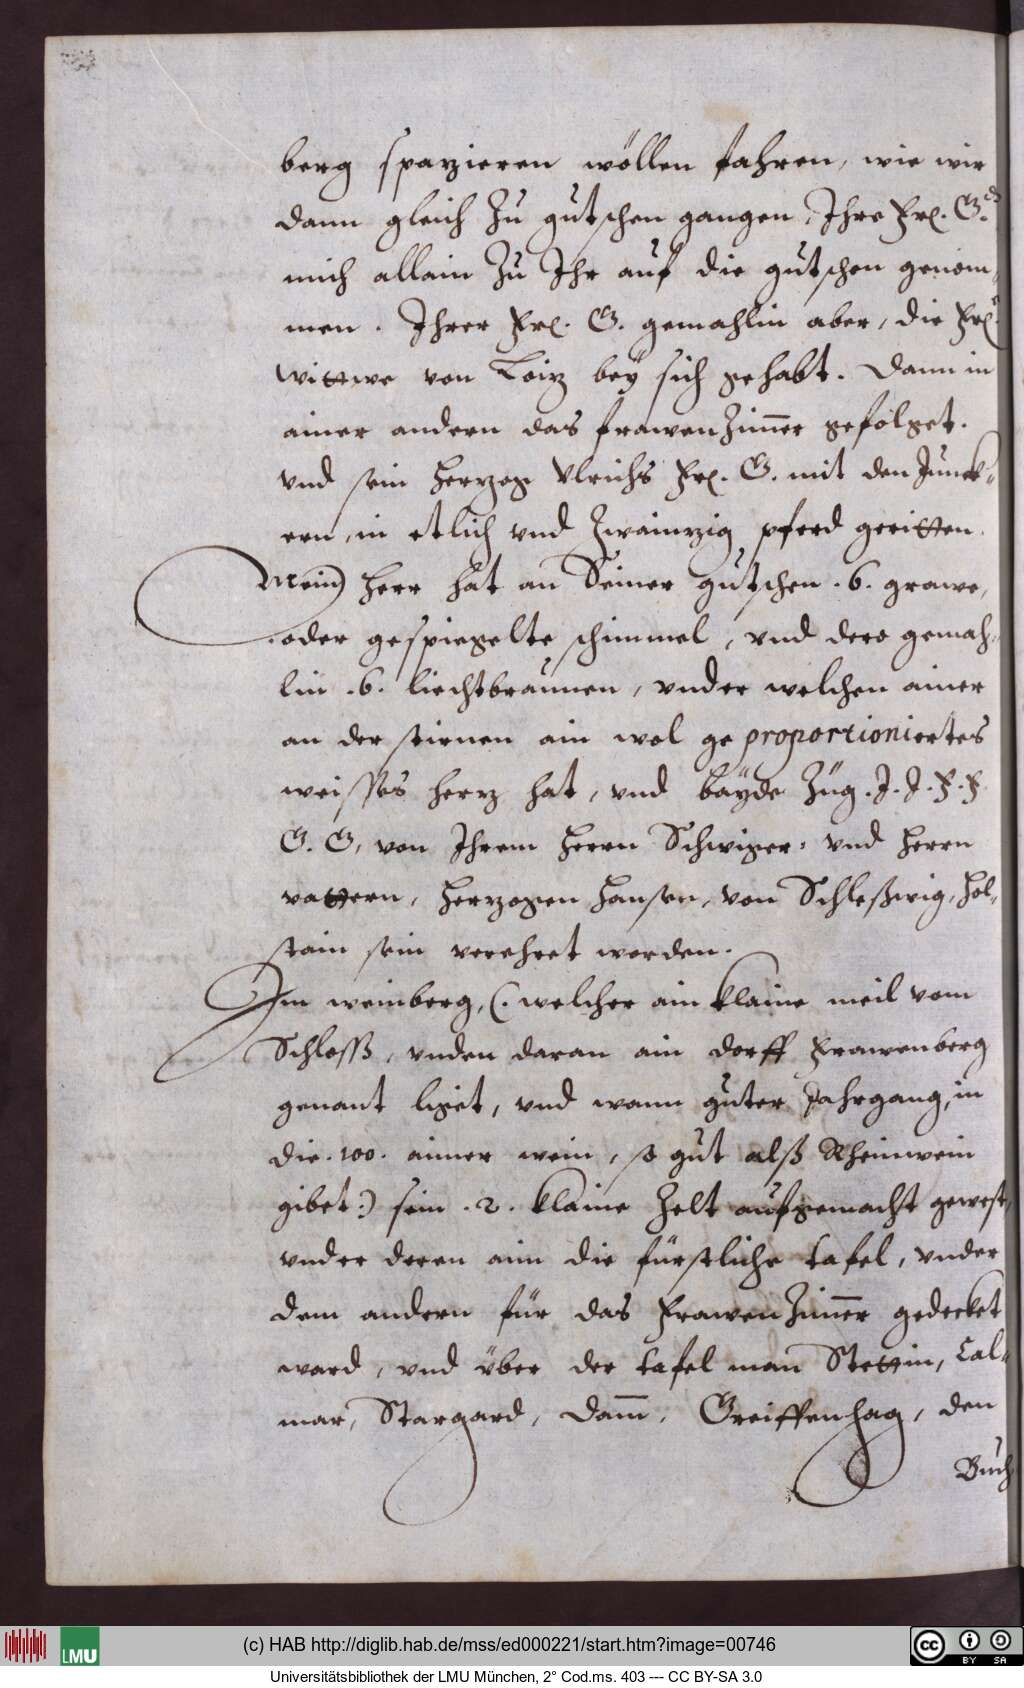 berg spazieren wöllen fahren, wie wir
dann gleich zu gutschen gangen, Ihre Frl. G.
mich allain zu Ihr auf die gutschen genom-
men. Ihrer Frl. G. gemahlin aber, die Frl.
wittwe von Loiz bey sich gehabt. Dann in
ainer andern das frawenZim̄er gefolget.
vnd sein Herzog Vlrichs Frl. G. mit den Junck-
ern, in etlich vnd zwainzig pferd geritten.
Mein Herr hat an Seiner gutschen .6. grawe,
oder gespiegelte schimmel, vnd dero gemah-
lin .6. liechtbraunen, vnder welchen ainer
an der stirnen ain wol geproportioniertes
weisses herz hat, vnd bayde Züg .J.J.F.F.
G. G. von Ihrem Herrn Schwiger- vnd Herrn
vattern, Herzogen Hansen, von Schleßwig, Hol-
stain sein verehret worden.
Im weinberg, (. welcher ain klaine meil vom
Schloss, vnden daran ain dorff Frawenberg
genant liget, vnd wann guter Jahrgang, in
die .100. aimer wein, so gut alß Rheinwein
gibet:) sein .2. klaine Zelt aufgemacht gewest,
vnder deren ain die fürstliche tafel, vnder
dem andern für das FrawenZim̄er gedecket
ward, vnd über der tafel man Stettin, Col-
mar, Stargard, Dam̄, Greiffenhag, den
Buch
(c) HAB http://diglib.hab.de/mss/ed000221/start.htm?image=00746
LMU
cc BY SA
Universitätsbibliothek der LMU München, 2° Cod.ms. 403 --- CC BY-SA 3.0